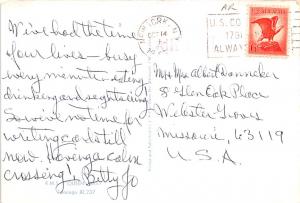 We've had the time of
our lives - busy
every minute - eating,
drinking and sightseeing.
So we've no time for
writing cards till
now. Having a calm
crossing, Betty Jo
NEW YORK, N.Y.
OCT 14
U.S. CO
ALWAY
AIR MAIL
6¢
Mr. & Mrs. Albert Wanneker
8 Glen Oak Place
Webster Groves
Missouri, 63119
U.S.A.